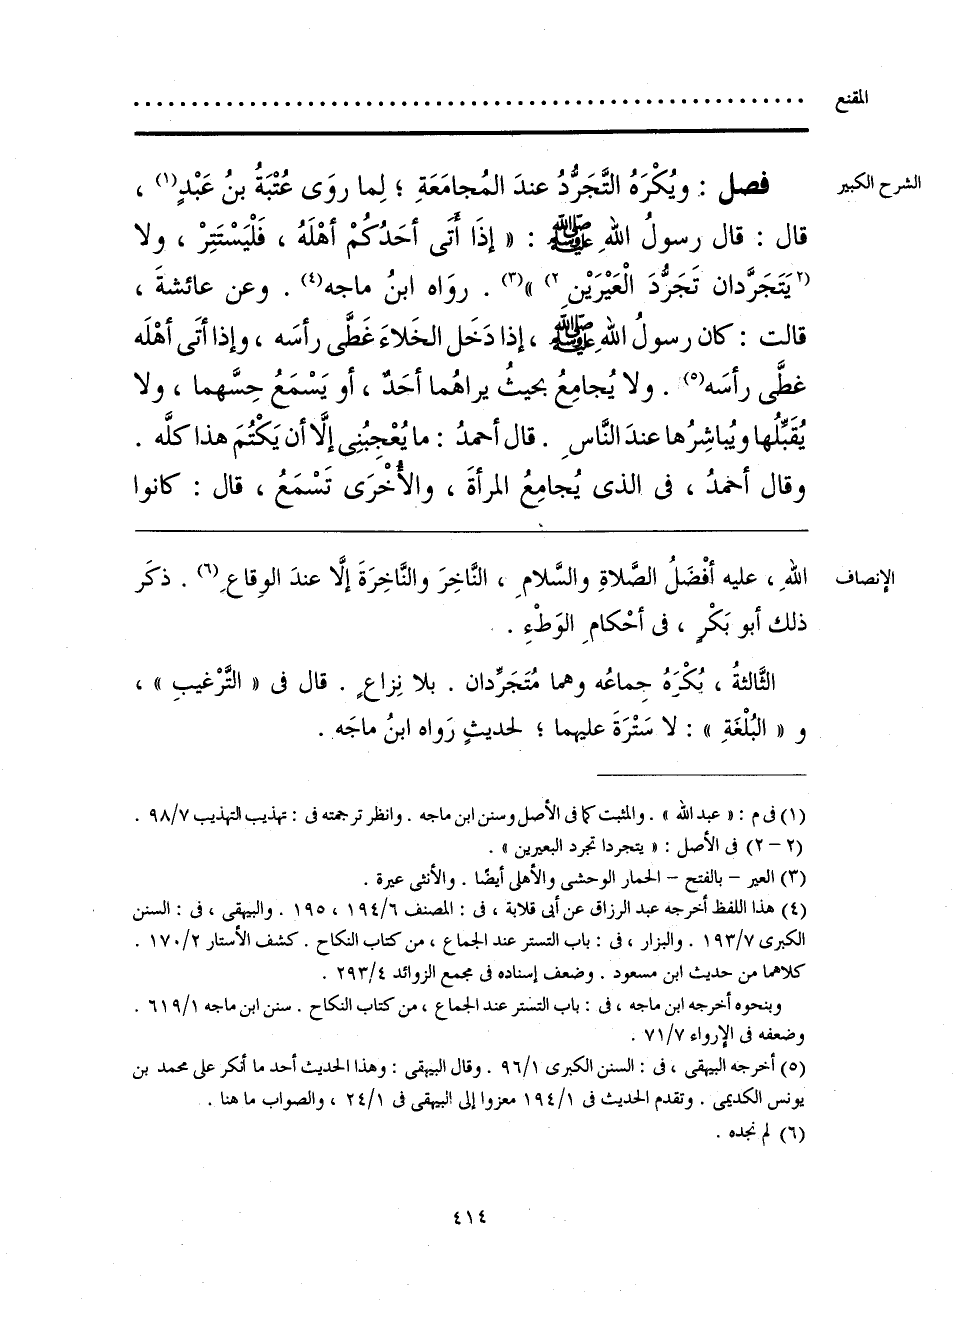 المقنع ............................................................
الشرح الكبير فصل : ويُكْرَهُ التَّجَرُّدُ عندَ المُجامَعَةِ ؛ لِما روَى عُتْبَةُ بنُ عَبْدٍ(١) ،
قال : قال رسولُ اللهِ ﷺ : « إِذَا أَتَى أحَدُكُمْ أهْلَهُ ، فَلْيَسْتَتِرْ ، ولا
(٢يَتَجَرَّدان تَجَرُّدَ الْعَيْرَيْنِ٢) »(٣) . روَاه ابنُ ماجه(٤) . وعن عائشةَ ،
قالت : كان رسولُ اللهِ ﷺ ، إذا دَخَل الخَلاءَ غَطَّى رأسَه ، وإذا أتَى أهْلَه
غطَّى رأسَه(٥) . ولا يُجامِعُ بحيثُ يراهُما أحَدٌ ، أو يَسْمَعُ حِسَّهما ، ولا
يُقَبِّلُها ويُباشِرُها عندَ النَّاسِ . قال أحمدُ : ما يُعْجِبُنِى إلَّا أن يَكْتُمَ هذا كلَّه .
وقال أحمدُ ، فى الذى يُجامِعُ المرأةَ ، والأُخْرَى تَسْمَعُ ، قال : كانوا
الإنصاف اللهِ ، عليه أفْضَلُ الصَّلاةِ والسَّلامِ ، النَّاخِرَ والنَّاخِرَةَ إلَّا عندَ الوِقاعِ(٦) . ذكَر
ذلك أبو بَكْرٍ ، فى أحْكامِ الوَطْءِ .
الثَّالثةُ ، يُكْرَهُ جِماعُه وهما مُتَجَرِّدان . بلا نِزاعٍ . قال فى « التَّرْغيبِ » ،
و « البُلْغَةِ » : لا سَتْرَةَ عليهما ؛ لحديثٍ رَواه ابنُ ماجَه .
(١) فى م : « عبد الله » . والمثبت كما فى الأصل وسنن ابن ماجه . وانظر ترجمته فى : تهذيب التهذيب ٩٨/٧ .
(٢ - ٢) فى الأصل : « يتجردا تجرد البعيرين » .
(٣) العير - بالفتح - الحمار الوحشى والأهلى أيضًا . والأنثى عيرة .
(٤) هذا اللفظ أخرجه عبد الرزاق عن أبى قلابة ، فى : المصنف ١٩٤/٦ ، ١٩٥ . والبيهقى ، فى : السنن
الكبرى ١٩٣/٧ . والبزار ، فى : باب التستر عند الجماع ، من كتاب النكاح . كشف الأستار ١٧٠/٢ .
كلاهما من حديث ابن مسعود . وضعف إسناده فى مجمع الزوائد ٢٩٣/٤ .
وبنحوه أخرجه ابن ماجه ، فى : باب التستر عند الجماع ، من كتاب النكاح . سنن ابن ماجه ٦١٩/١ .
وضعفه فى الإرواء ٧١/٧ .
(٥) أخرجه البيهقى ، فى : السنن الكبرى ٩٦/١ . وقال البيهقى : وهذا الحديث أحد ما أنكر على محمد بن
يونس الكديمى . وتقدم الحديث فى ١٩٤/١ معزوا إلى البيهقى فى ٢٤/١ ، والصواب ما هنا .
(٦) لم نجده .
٤١٤